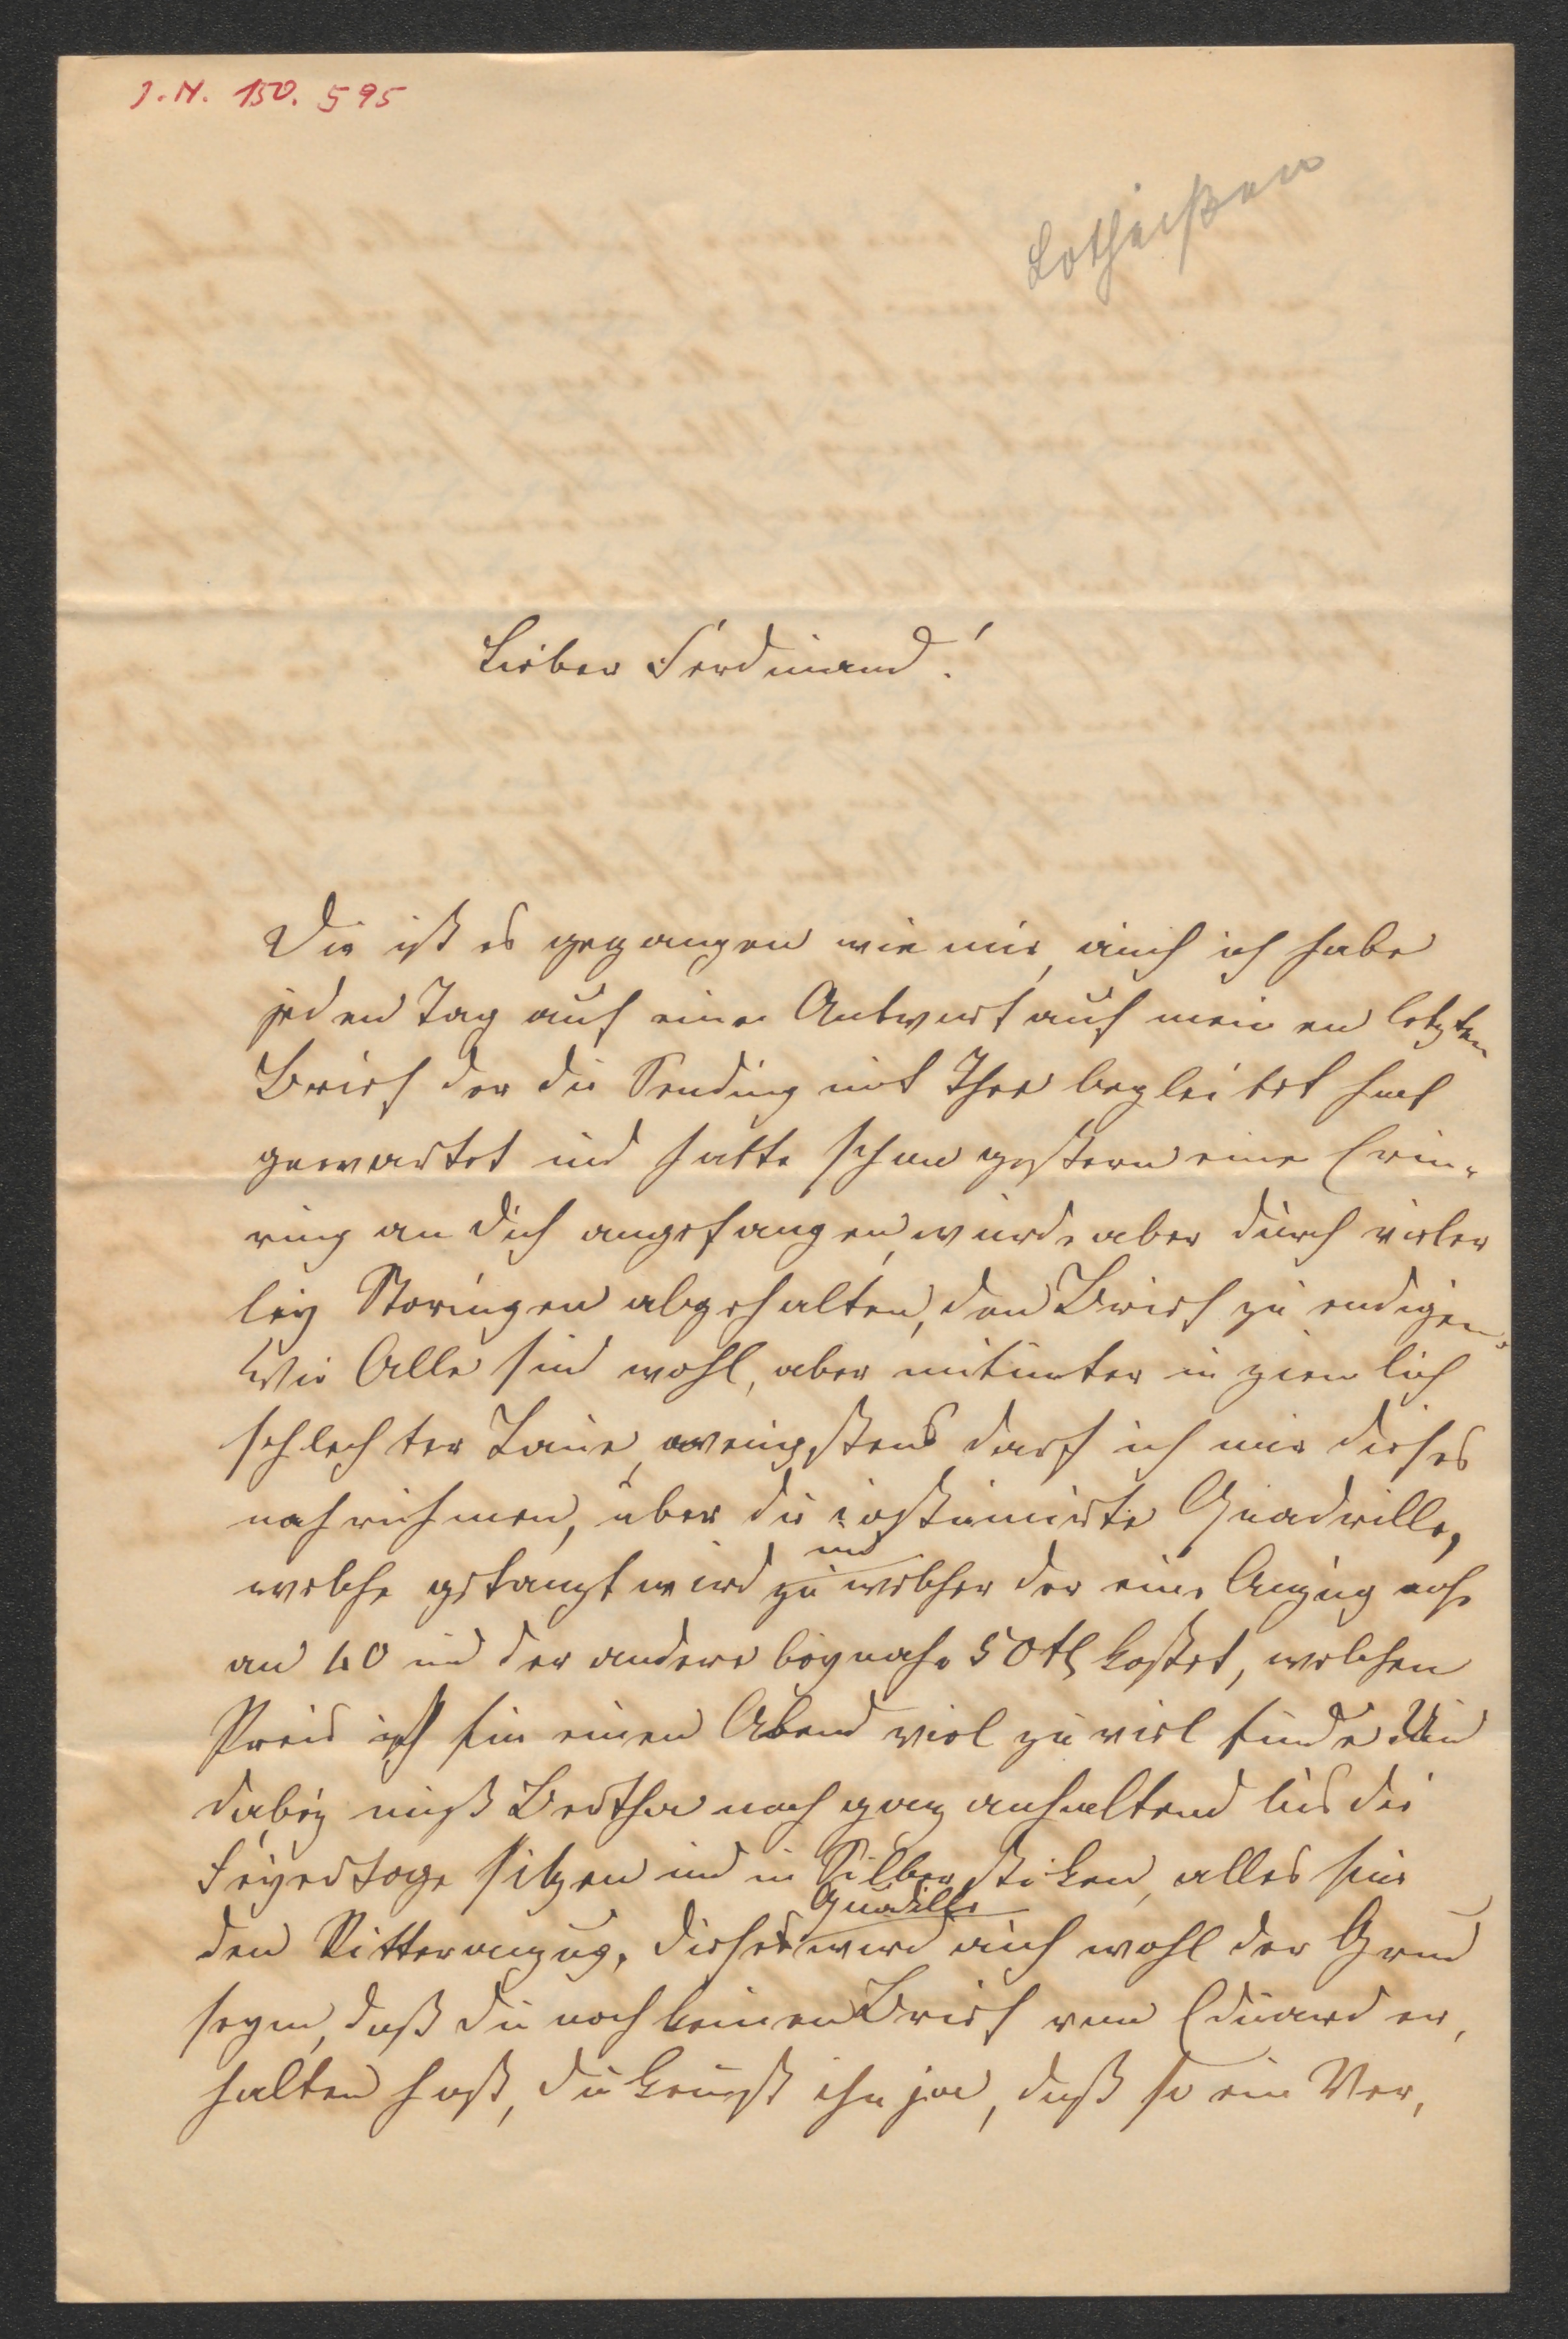 J. N. 150. 595
Lotheißen
Lieber Ferdinand!
Dir ist es gegangen wie mir, auch ich habe
jeden Tag auf eine Antwort auf meinen letzten
Brief der die Sendung mit Thee begleitet hat
gewartet und hatte schon gestern eine Erin„
rung an dich angefangen, wurde aber durch vieler
ley Storungen abgehalten, den Brief zu endigen.
Wir Alle sind wohl, aber mitunter in ziemlich
schlechter Laune, wenigstens darf ich mir dieses
nachrühmen, über die costumirte Quadrille,
welche getanzt wird und
zu welcher der eine Anzug nahe
an 40 und der andere beynahe 50 fl kostet, welchen
Preis ich für einen Abend viel zu viel finde. Und
dabey muß Bertha noch ganz anhaltend bis die
Feyertage sitzen und in Silber sticken, alles für
Quadille
den Ritteranzug. Diese wird auch wohl der Grund
seyn, daß du noch keinen Brief von Eduard er,
halten hast, du kennst ihn ja, daß so ein Ver,